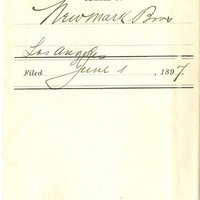 Newmark Bros
Los Angeles
Filed June 1, 1897.